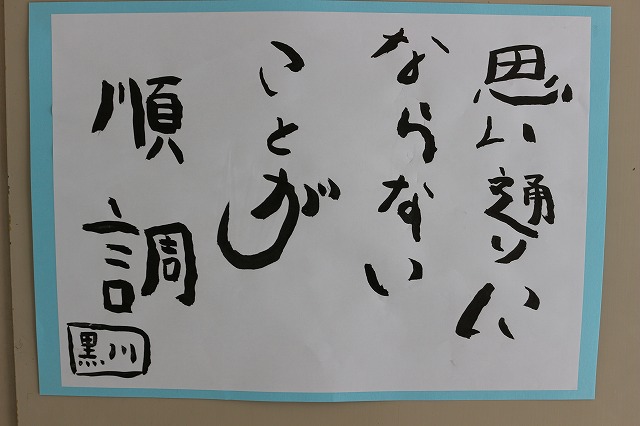 思い通りに
ならない
ことが
順調
黒川